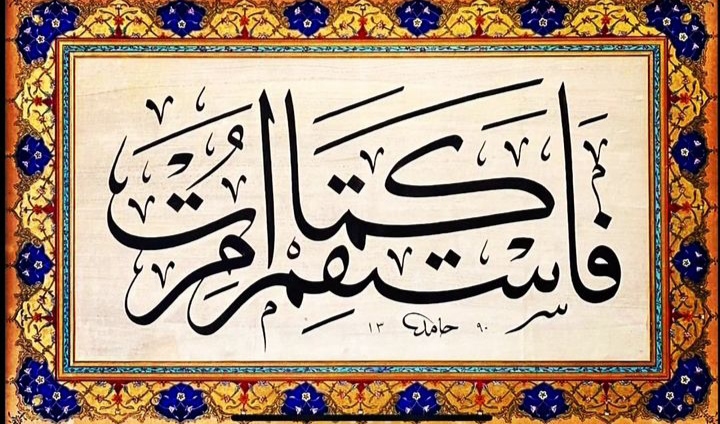 فَاسْتَقِمْ كَمَا أُمِرْتَ
٩٠ حامد ١٣